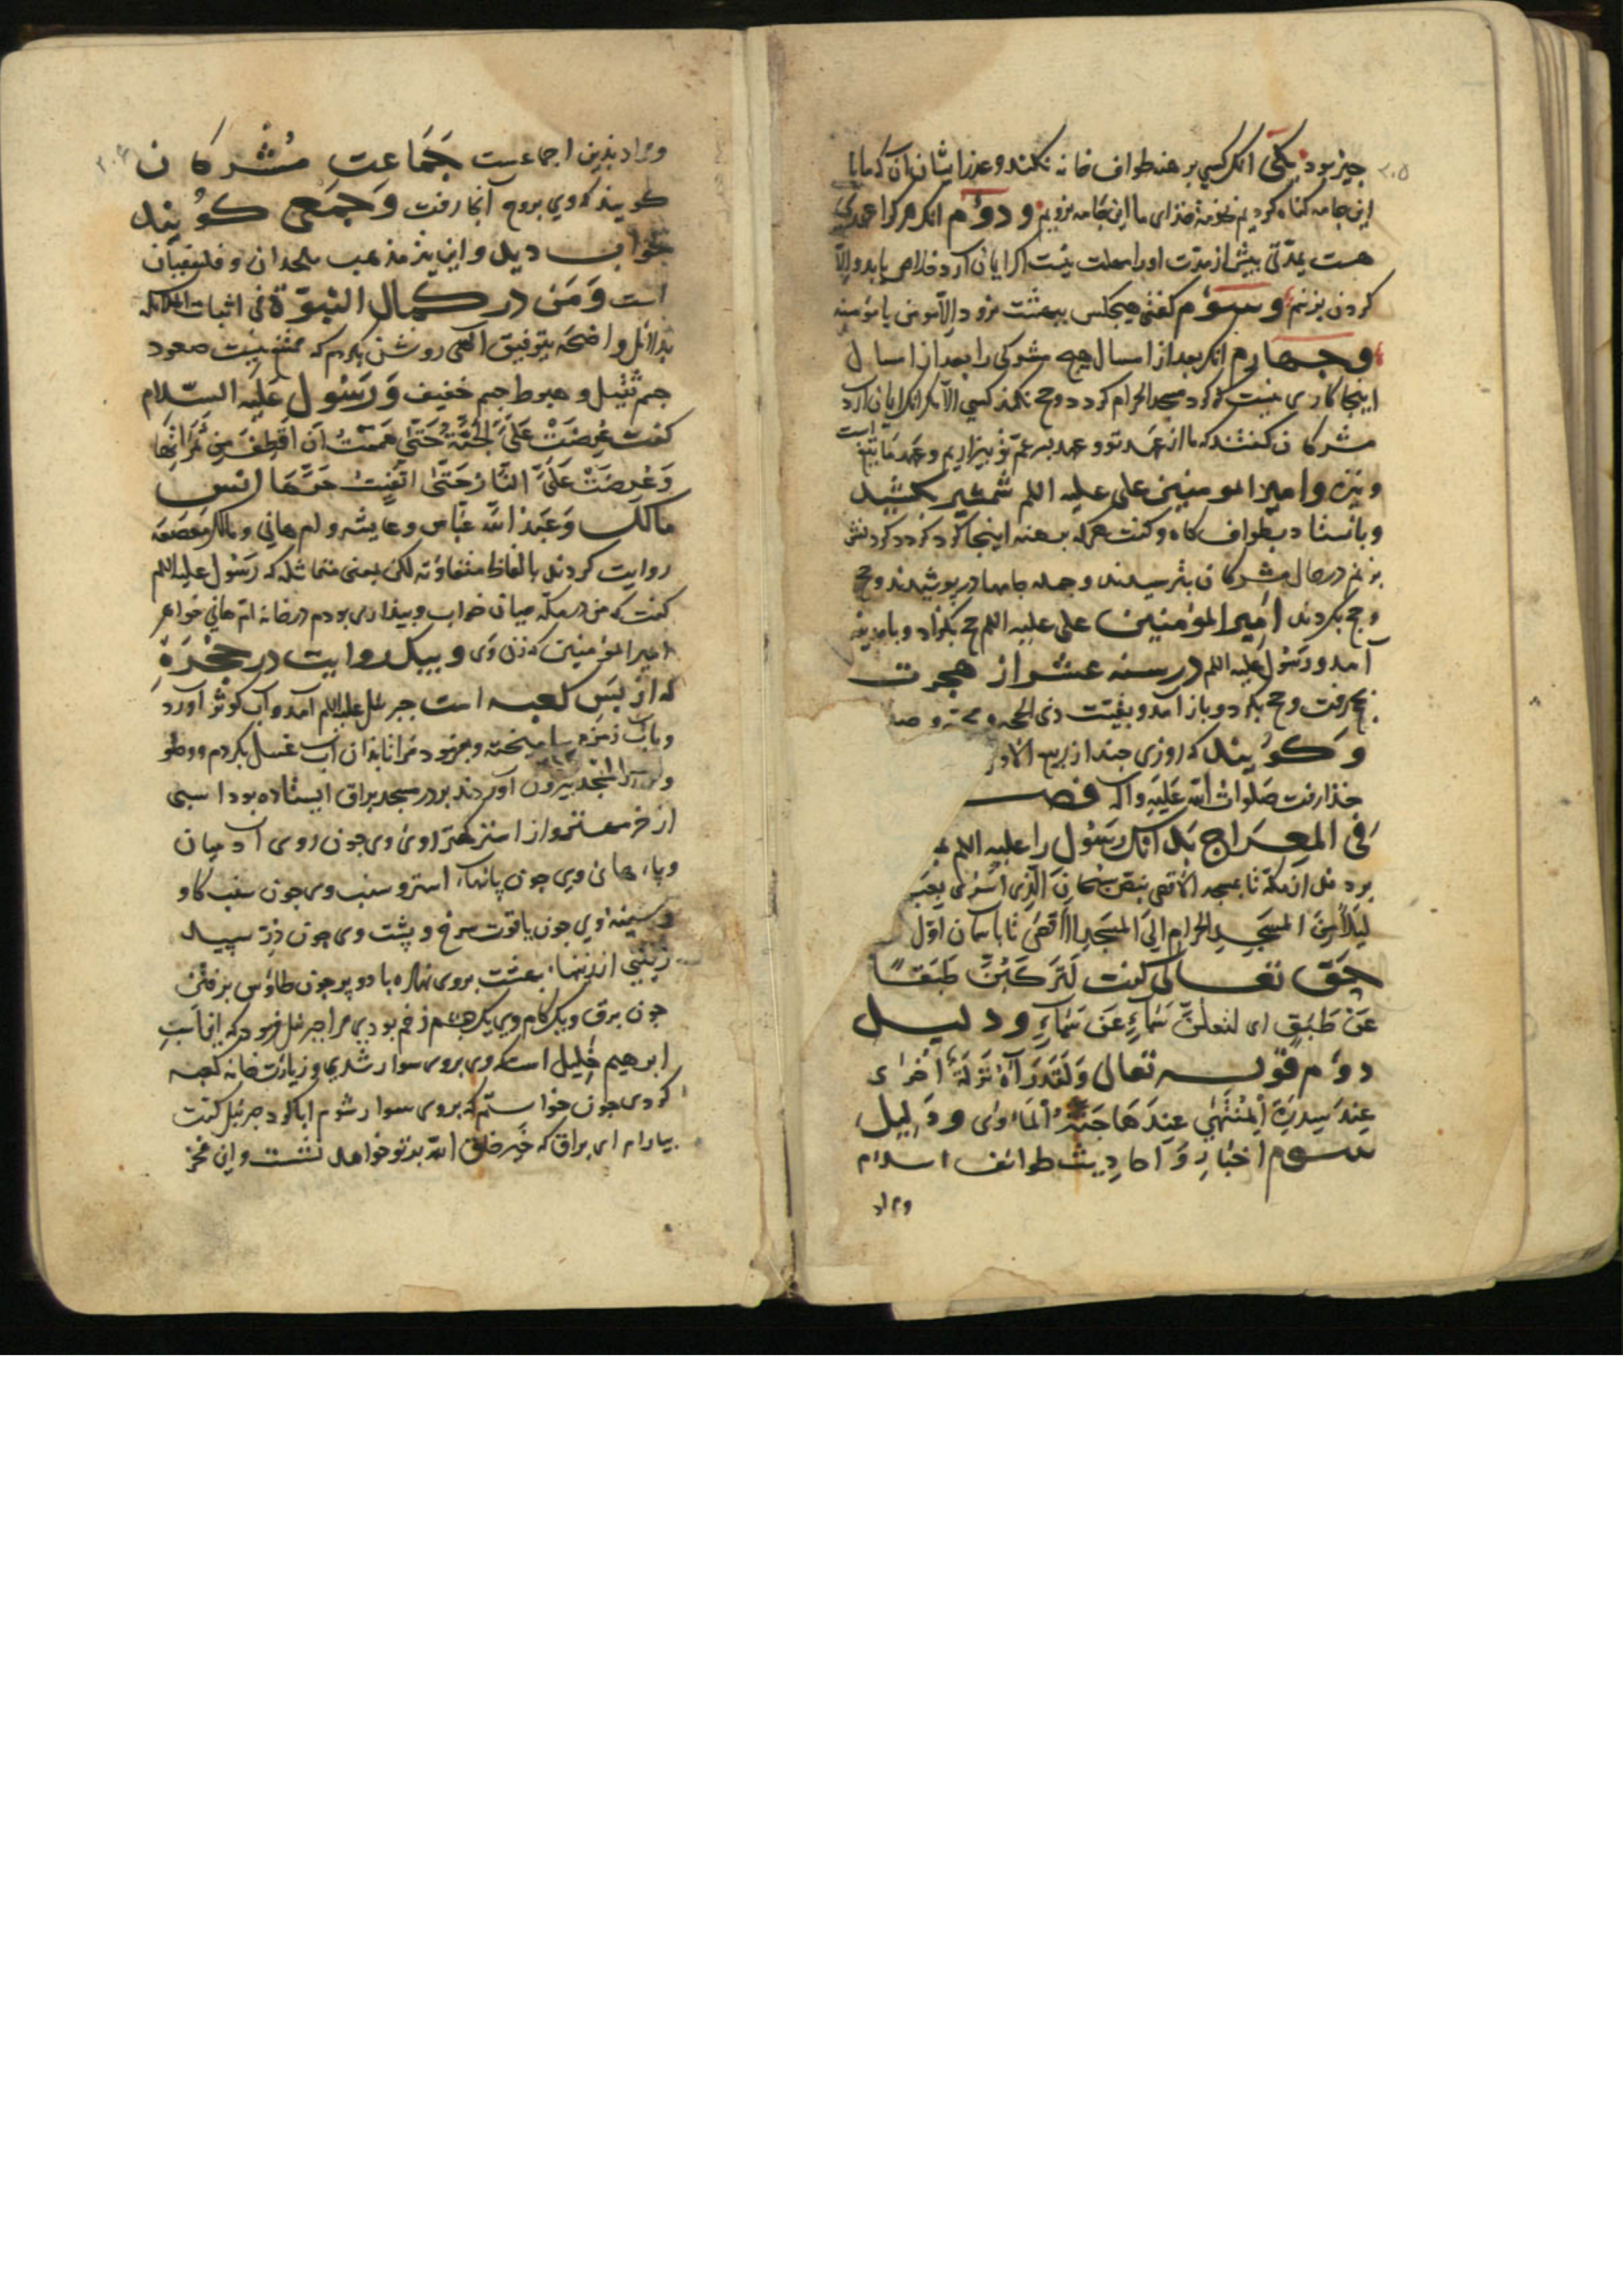 چیز بود یکی انک کسی برهنه طواف خانه نکند و عذر ایشان آن که ما با
این جامه کناه کردیم بخدمة خذای ما این جامه نرویم و دوم انک هرکرا عهدی
هست بمدتی بیش از مدت او را مهلت نیست اکر ایمان آرد خلاص یابد و الا
کردن بزنیم و سوم کفتی هیجکس ببهشت نرود الا مومن یا مومنه
و جهارم انک بعد از امسال هیچ مشرکی را بعد از امسال
اینجا کاری نیست که کرد مسجد الحرام کردد و حج نکند کسی الا مکر انک ایمان آرد
مشرکان کفتند که ما از عهد تو و عهد بسر عم تو بیزاریم و عهد ما تیغ است
و نیزه و امیر المومنین علی علیه السلم شمشیر بکشید
و بایستاد بطواف کاه و کفت هرکه برهنه اینجا کرد کردد کردنش
بزنم در حال مشرکان بترسیدند و جمله جامها در بوشیدند و حج
و حج بکردند امیر المؤمنین علی علیه السلم حج بکزارد و با مدینه
آمد و رسول علیه السلم در سنه عشر از هجرت
بحج رفت و حج بکرد و باز آمد و بقیت ذی الحجه و محرم و صفر
و کویند که روزی جند از ربیع الاول
خذا رفت صلوات الله علیه و آله فصــ
فی المعراج بدانک رسول را علیه السلم
بردند از مکه تا بمسجد الاقصی بنص سبحان الذی اسری بعبده
لیلا من المسجد الحرام الی المسجد الاقصی تا باسمان اول
حق تعالی کفت لترکبن طبقا
عن طبق ای لتعلن سماء عن سماء و دلیل
دوم قوله تعالی ولقد رآه نزلة اخری
عند سدرة المنتهی عندها جنة الماوی و دلیل
سوم اخبار و احادیث طوائف اسلام
و مراد
۲۰۵
و مراد بدین اجماعست جماعت مشرکان
کویند که وی بروح آنجا رفت و جمعی کویند
بخواب دید و این نیز مذهب ملحدان و فلسفیان
است و من در کمال النبوة فی اثبات
بدلائل واضحه بتوفیق الهی روشن بکردم که ممتنع نیست صعود
جسم ثقیل و هبوط جسم خفیف و رسول علیه السلام
کفت عرضت علی الجنة حتی هممت ان اقطف من ثمراتها
و عرضت علی النار حتی اتقیت حرها انس
مالک و عبد الله عباس و عایشه و ام هانی و مالک صعصعه
روایت کردند بالفاظ متفاوته لکن بمعنی متماثله که رسول علیه السلم
کفت که من در مکه میان خواب و بیداری بودم در خانه ام هانی خواهر
امیر المؤمنین که زن وی و بیک روایت در حجره
که از بس کعبه است جبرئیل علیه السلم آمد و آب کوثر آورد
و باب زمزم بیامیخته و بفرمود مرا تا بذان آب غسل بکردم و وضو
و از مسجد بیرون آوردند بر در مسجد براق ایستاده بود اسبی
از خر مهتر و از استر کهتر روی وی جون روی آدمیان
و پایهای وی جون پایهای استر و سنب وی جون سنب کاو
و سینه وی جون یاقوت سرخ و پشت وی جون در سپید
زینی از زینها بهشت بروی نهاده با دو پر جون طاوس برفتن
جون برق و یک کام وی یک جشم زخم بودی مرا جبرئیل فرمود که این اسب
ابرهیم خلیل است که وی بروی سوار شدی و زیارت خانه کعبه
کردی جون خواستم که بروی سوار شوم ابا کرد جبرئیل کفت
بیارام ای براق که خیر خلق الله بر تو خواهد نشست و این فخر